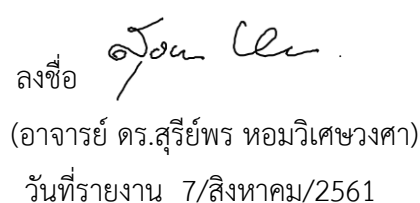 ลงชื่อ
(อาจารย์ ดร.สุรีย์พร หอมวิเศษวงศา)
วันที่รายงาน 7/สิงหาคม/2561